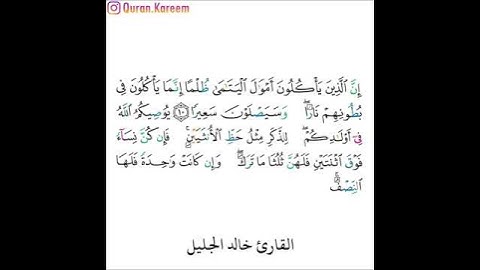 Quran.Kareem
إِنَّ الَّذِينَ يَأْكُلُونَ أَمْوَٰلَ الْيَتَٰمَىٰ ظُلْمًا إِنَّمَا يَأْكُلُونَ فِى
بُطُونِهِمْ نَارًا ۖ وَسَيَصْلَوْنَ سَعِيرًا ۝١٠ يُوصِيكُمُ اللَّهُ
فِىٓ أَوْلَٰدِكُمْ ۖ لِلذَّكَرِ مِثْلُ حَظِّ الْأُنثَيَيْنِ ۚ فَإِن كُنَّ نِسَآءً
فَوْقَ اثْنَتَيْنِ فَلَهُنَّ ثُلُثَا مَا تَرَكَ ۖ وَإِن كَانَتْ وَٰحِدَةً فَلَهَا
النِّصْفُ ۚ
القارئ خالد الجليل